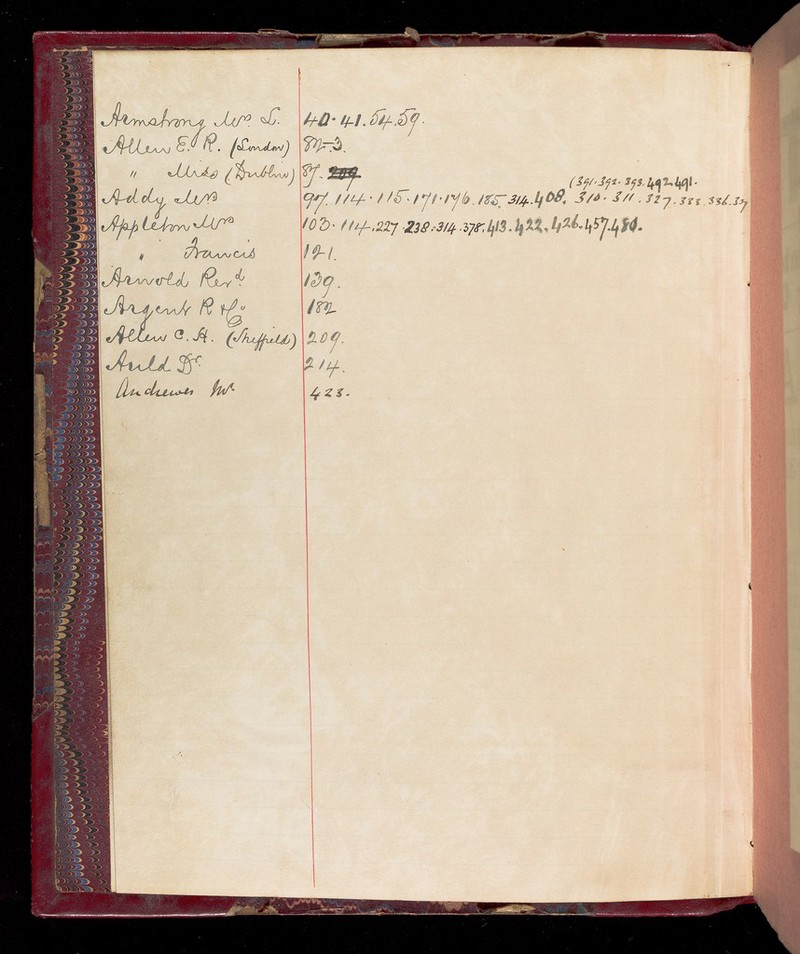 Armstrong Mrs L. 40. 41. 54. 59.
Allen E. R. (London) 82-3.
" Miss (Dublin) 87. 209
(391. 392. 393. 492. 491.
Addy Mrs 97. 114. 115. 171. 176. 185. 314. 408. 310. 311. 327. 333. 336. 
Appleton Mrs 103. 114. 227 238. 314. 378. 413. 422. 426. 457. 480.
" Francis 121.
Arnold Revd. 139.
Argent R & Co 182
Allen C. H. (Sheffield) 209.
Auld Dr. 214.
Andrewes Mr 423.